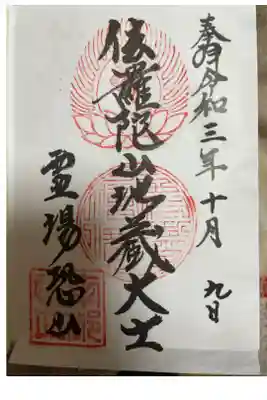 奉拝 令和三年十月九日
伝羅陀山地蔵大士
霊場恐山